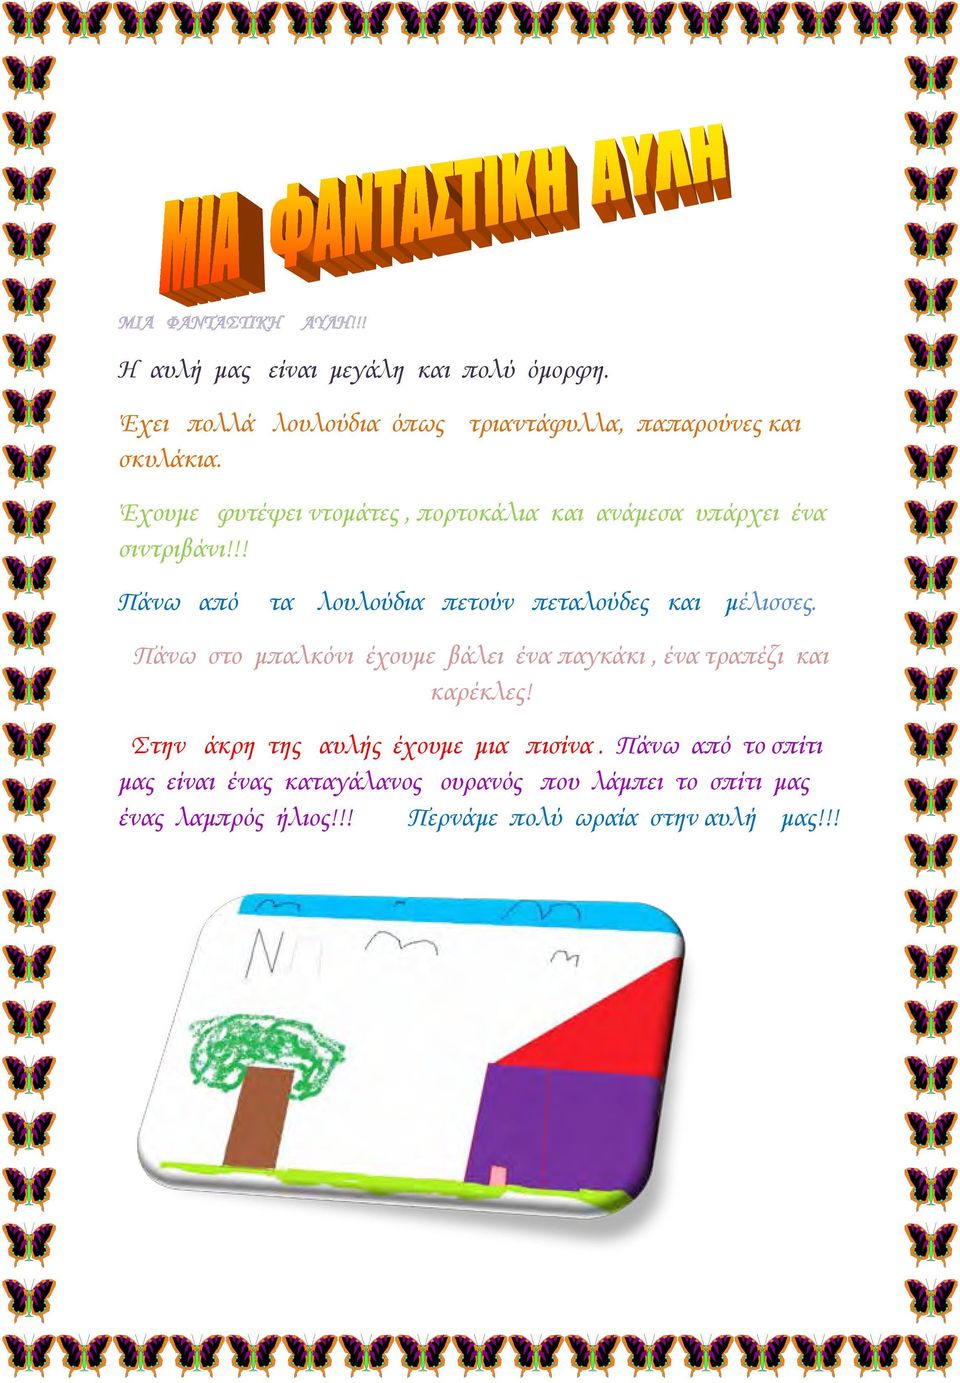 ΜΙΑ ΦΑΝΤΑΣΤΙΚΗ ΑΥΛΗ
ΜΙΑ ΦΑΝΤΑΣΤΙΚΗ ΑΥΛΗ!!!
Η αυλή μας είναι μεγάλη και πολύ όμορφη.
Έχει πολλά λουλούδια όπως τριαντάφυλλα, παπαρούνες και
σκυλάκια.
Έχουμε φυτέψει ντομάτες , πορτοκάλια και ανάμεσα υπάρχει ένα
σιντριβάνι!!!
Πάνω από τα λουλούδια πετούν πεταλούδες και μέλισσες.
Πάνω στο μπαλκόνι έχουμε βάλει ένα παγκάκι , ένα τραπέζι και
καρέκλες!
Στην άκρη της αυλής έχουμε μια πισίνα . Πάνω από το σπίτι
μας είναι ένας καταγάλανος ουρανός που λάμπει το σπίτι μας
ένας λαμπρός ήλιος!!! Περνάμε πολύ ωραία στην αυλή μας!!!